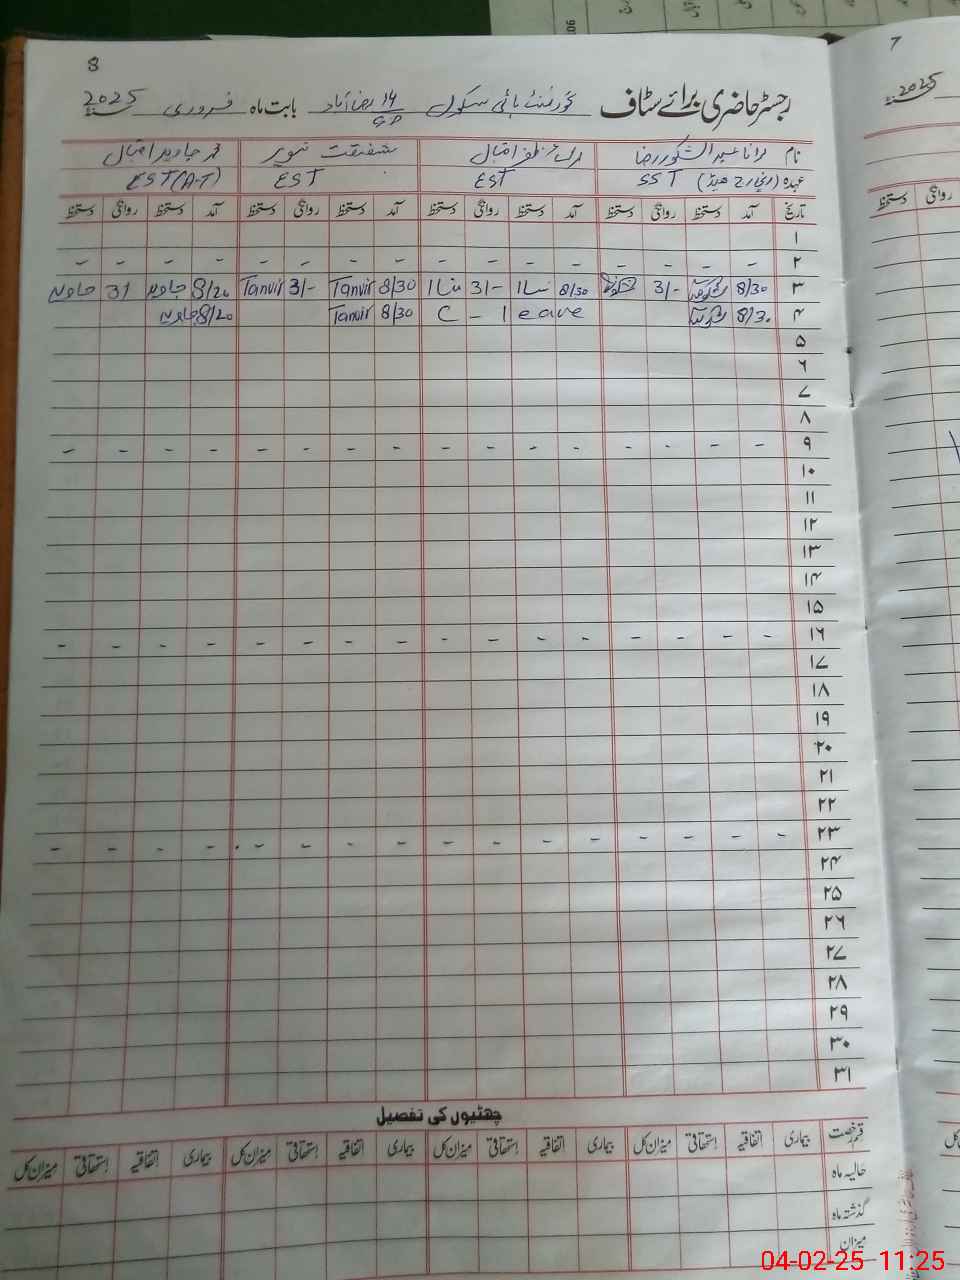 8
رجسٹر حاضری برائے سٹاف گورنمنٹ ہائی سکول 14 رضا آباد بابت ماہ فروری 2025
GD
نام رانا عبدالشکور رضا اقبال شفقت تنویر محمد جاوید اقبال
عہدہ SST (انچارج ہیڈ) EST EST EST (A-T)
تاریخ آمد دستخط روانگی دستخط آمد دستخط روانگی دستخط آمد دستخط روانگی دستخط آمد دستخط روانگی دستخط
۱
۲ - - - - - - - - - - - - - - - -
۳ 8/30 3/- 8/30 3/- 8/30 Tanvir 3/- Tanvir 8/20 جاوید 31 جاوید
۴ 8/30 C - leave 8/30 Tanvir 8/20 جاوید
۵
۶
۷
۸
۹ - - - - - - - - - - - - - - - -
۱۰
۱۱
۱۲
۱۳
۱۴
۱۵
۱۶ - - - - - - - - - - - - - - - -
۱۷
۱۸
۱۹
۲۰
۲۱
۲۲
۲۳ - - - - - - - - - - - - - - - -
۲۴
۲۵
۲۶
۲۷
۲۸
۲۹
۳۰
۳۱
چھٹیوں کی تفصیل
قسم رخصت بیماری اتفاقیہ استحقاقی میزان کل بیماری اتفاقیہ استحقاقی میزان کل بیماری اتفاقیہ استحقاقی میزان کل بیماری اتفاقیہ استحقاقی میزان کل
حالیہ ماہ
گذشتہ ماہ
میزان
7
2025
روانگی دستخط
04-02-25 11:25